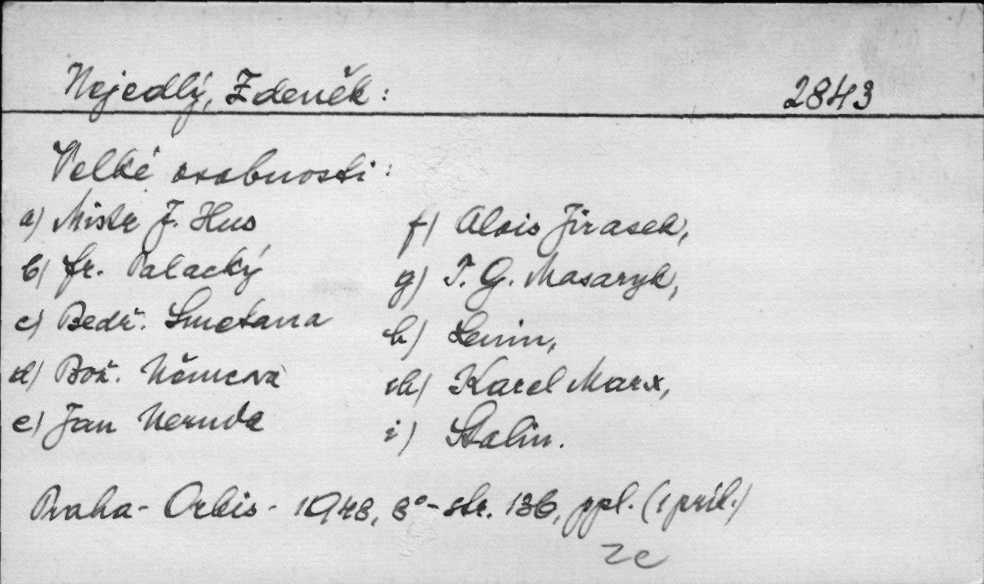 Nejedlý, Zdeněk: 2843
Velké osobnosti:
a) Mistr J. Hus
b) Fr. Palacký
c) Bedř. Smetana
d) Bož. Němcová
e) Jan Neruda
f) Alois Jirasek,
g) T. G. Masaryk,
h) Lenin,
ch) Karel Marx,
i) Stalin.
Praha - Orbis - 1948, 8° - str. 136, ppl. (1 príl.)